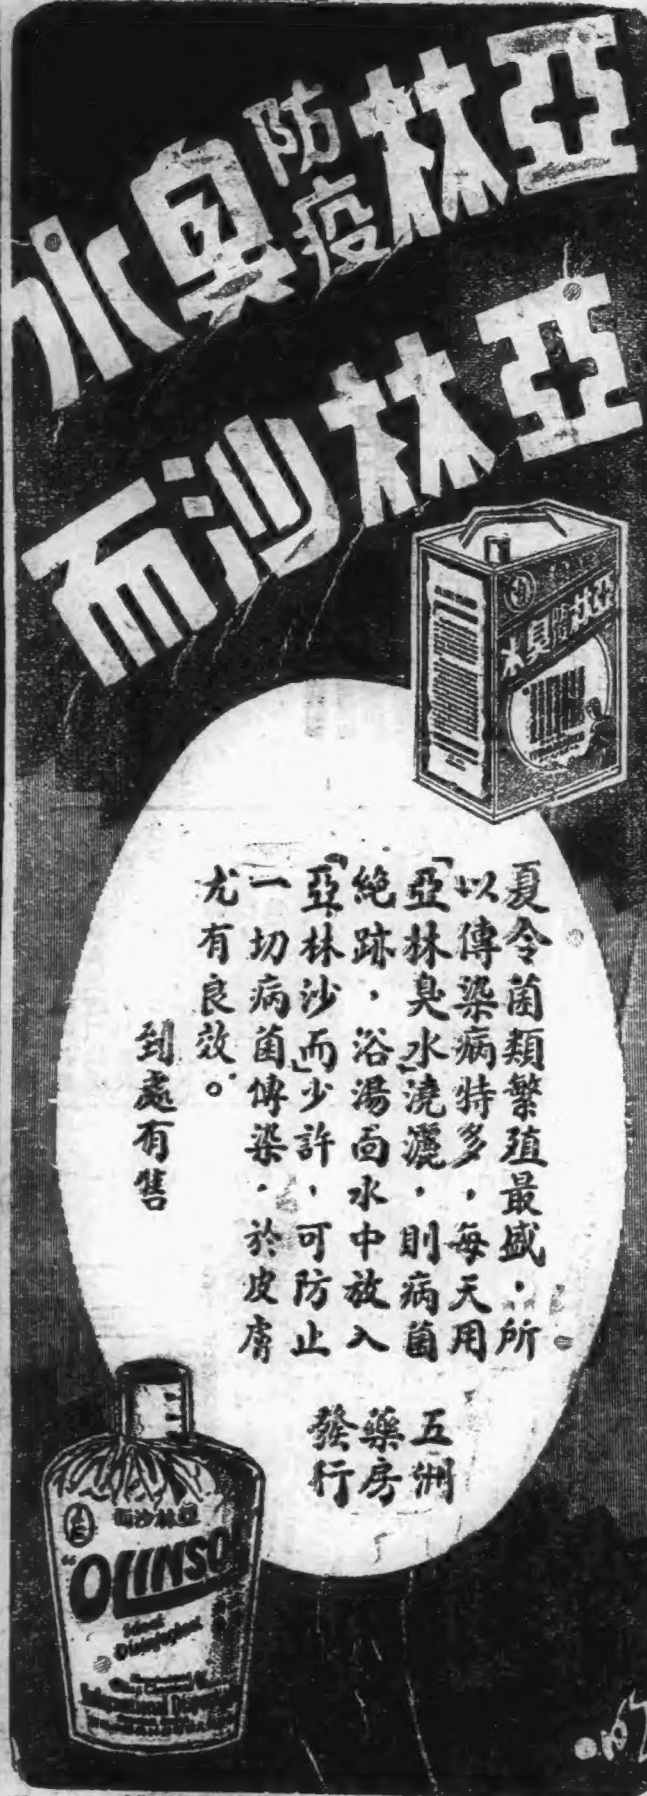 亞林防疫臭水
亞林沙而
亞林防疫臭水
夏令菌類繁殖最盛，所
以傳染病特多，每天用
「亞林臭水」澆灑，則病菌
絶跡，浴湯面水中放入
「亞林沙而」少許，可防止
一切病菌傳染，於皮膚
尤有良效。
到處有售
五洲
藥房
發行
亞林沙而
"OLINSO
Ideal
Disinfectant
International Dispensary